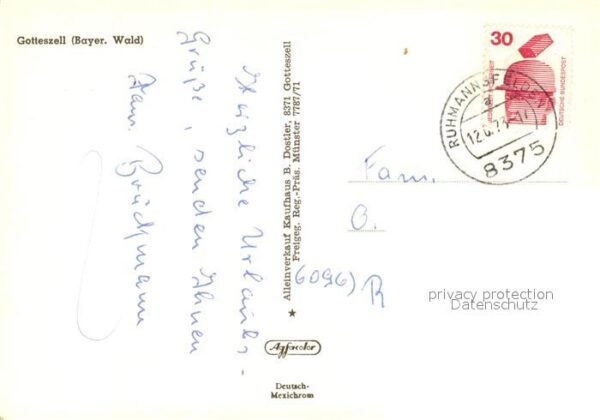 Gotteszell (Bayer. Wald)
Herzliche Urlaubs-
Grüße, senden Ihnen
Fam. Brückmann
Alleinverkauf Kaufhaus B. Dostler, 8371 Gotteszell
Freigeg. Reg.-Präs. Münster 7787/71
30
DEUTSCHE BUNDESPOST
RUHMANNSFELDEN
a
12.6.73-17
8375
Fam.
O.
6096) R
privacy protection
Datenschutz
Agfacolor
Deutsch-
Mexichrom